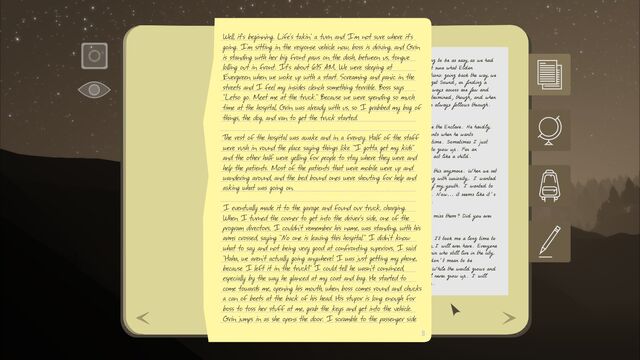 Well, it's beginning. Life's takin' a turn and I'm not sure where it's
going. I'm sitting in the response vehicle now, boss is driving, and Grin
is standing with her big front paws on the dash, between us, tongue
lolling out in front. It's about 6:15 AM. We were sleeping at
Evergreen when we woke up with a start. Screaming and panic in the
streets and I feel my insides clench something terrible. Boss says
"Letss go. Meet me at the truck." Because we were spending so much
time at the hospital, Grin was already with us, so I grabbed my bag of
things, the dog, and ran to get the truck started.
The rest of the hospital was awake and in a frenzy. Half of the staff
were rush in round the place saying things like "I gotta get my kids"
and the other half were yelling for people to stay where they were and
help the patients. Most of the patients that were mobile were up and
wandering around, and the bed bound ones were shouting for help and
asking what was going on.
I eventually made it to the garage and found our truck, charging.
When I turned the corner to get into the driver's side, one of the
program directors, I couldn't remember his name, was standing, with his
arms crossed, saying "No one is leaving this hospital." I didn't know
what to say and not being very good at confronting superiors, I said
"Haha, we aren't actually going anywhere! I was just getting my phone,
because I left it in the truck!" I could tell he wasn't convinced,
especially by the way he glanced at my coat and bag. He started to
come towards me, opening his mouth, when boss comes round and chucks
a can of beets at the back of his head. His stupor is long enough for
boss to toss her stuff at me, grab the keys and get into the vehicle.
Grin jumps in as she opens the door. I scramble to the passenger side
to be as easy, as we had
was what Elden
going back the way, we
Sound, on finding a
ways across are few and
determined, though, and when
always follows through.
the Enclave. He hardly
when he wants
time. Sometimes I just
to grow up. For an
act like a child.
this anymore. When we set
with curiosity. I wanted
of my youth. I wanted to
Now... it seems like it's
miss them? Did you ever
It'll take me a long time to
I will earn here. Everyone
who still live in the city,
I mean to be
While the world grows and
never grow up. I will